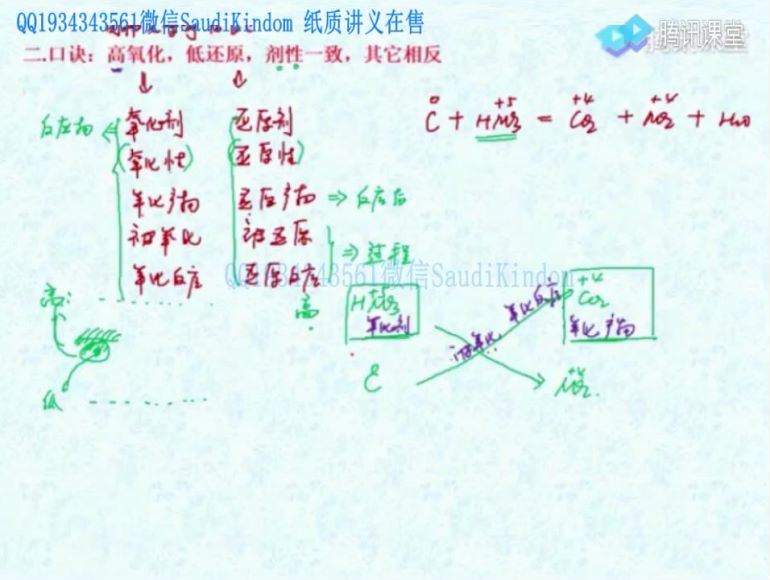 QQ1934343561微信SaudiKindom 纸质讲义在售
腾讯课堂
二.口诀：高氧化，低还原，剂性一致，其它相反
反应物
氧化剂 还原剂
(氧化性) (还原性)
氧化产物 还原产物 ⇒ 反应后
被氧化 被还原
⇒ 过程
氧化反应 还原反应
0 +5 +4 +4
C + HNO3 = CO2 + NO2 + H2O
QQ1934343561微信SaudiKindom
高:
低
高
HNO3
氧化剂
C
被氧化 氧化反应
+4
CO2
氧化产物
NO2